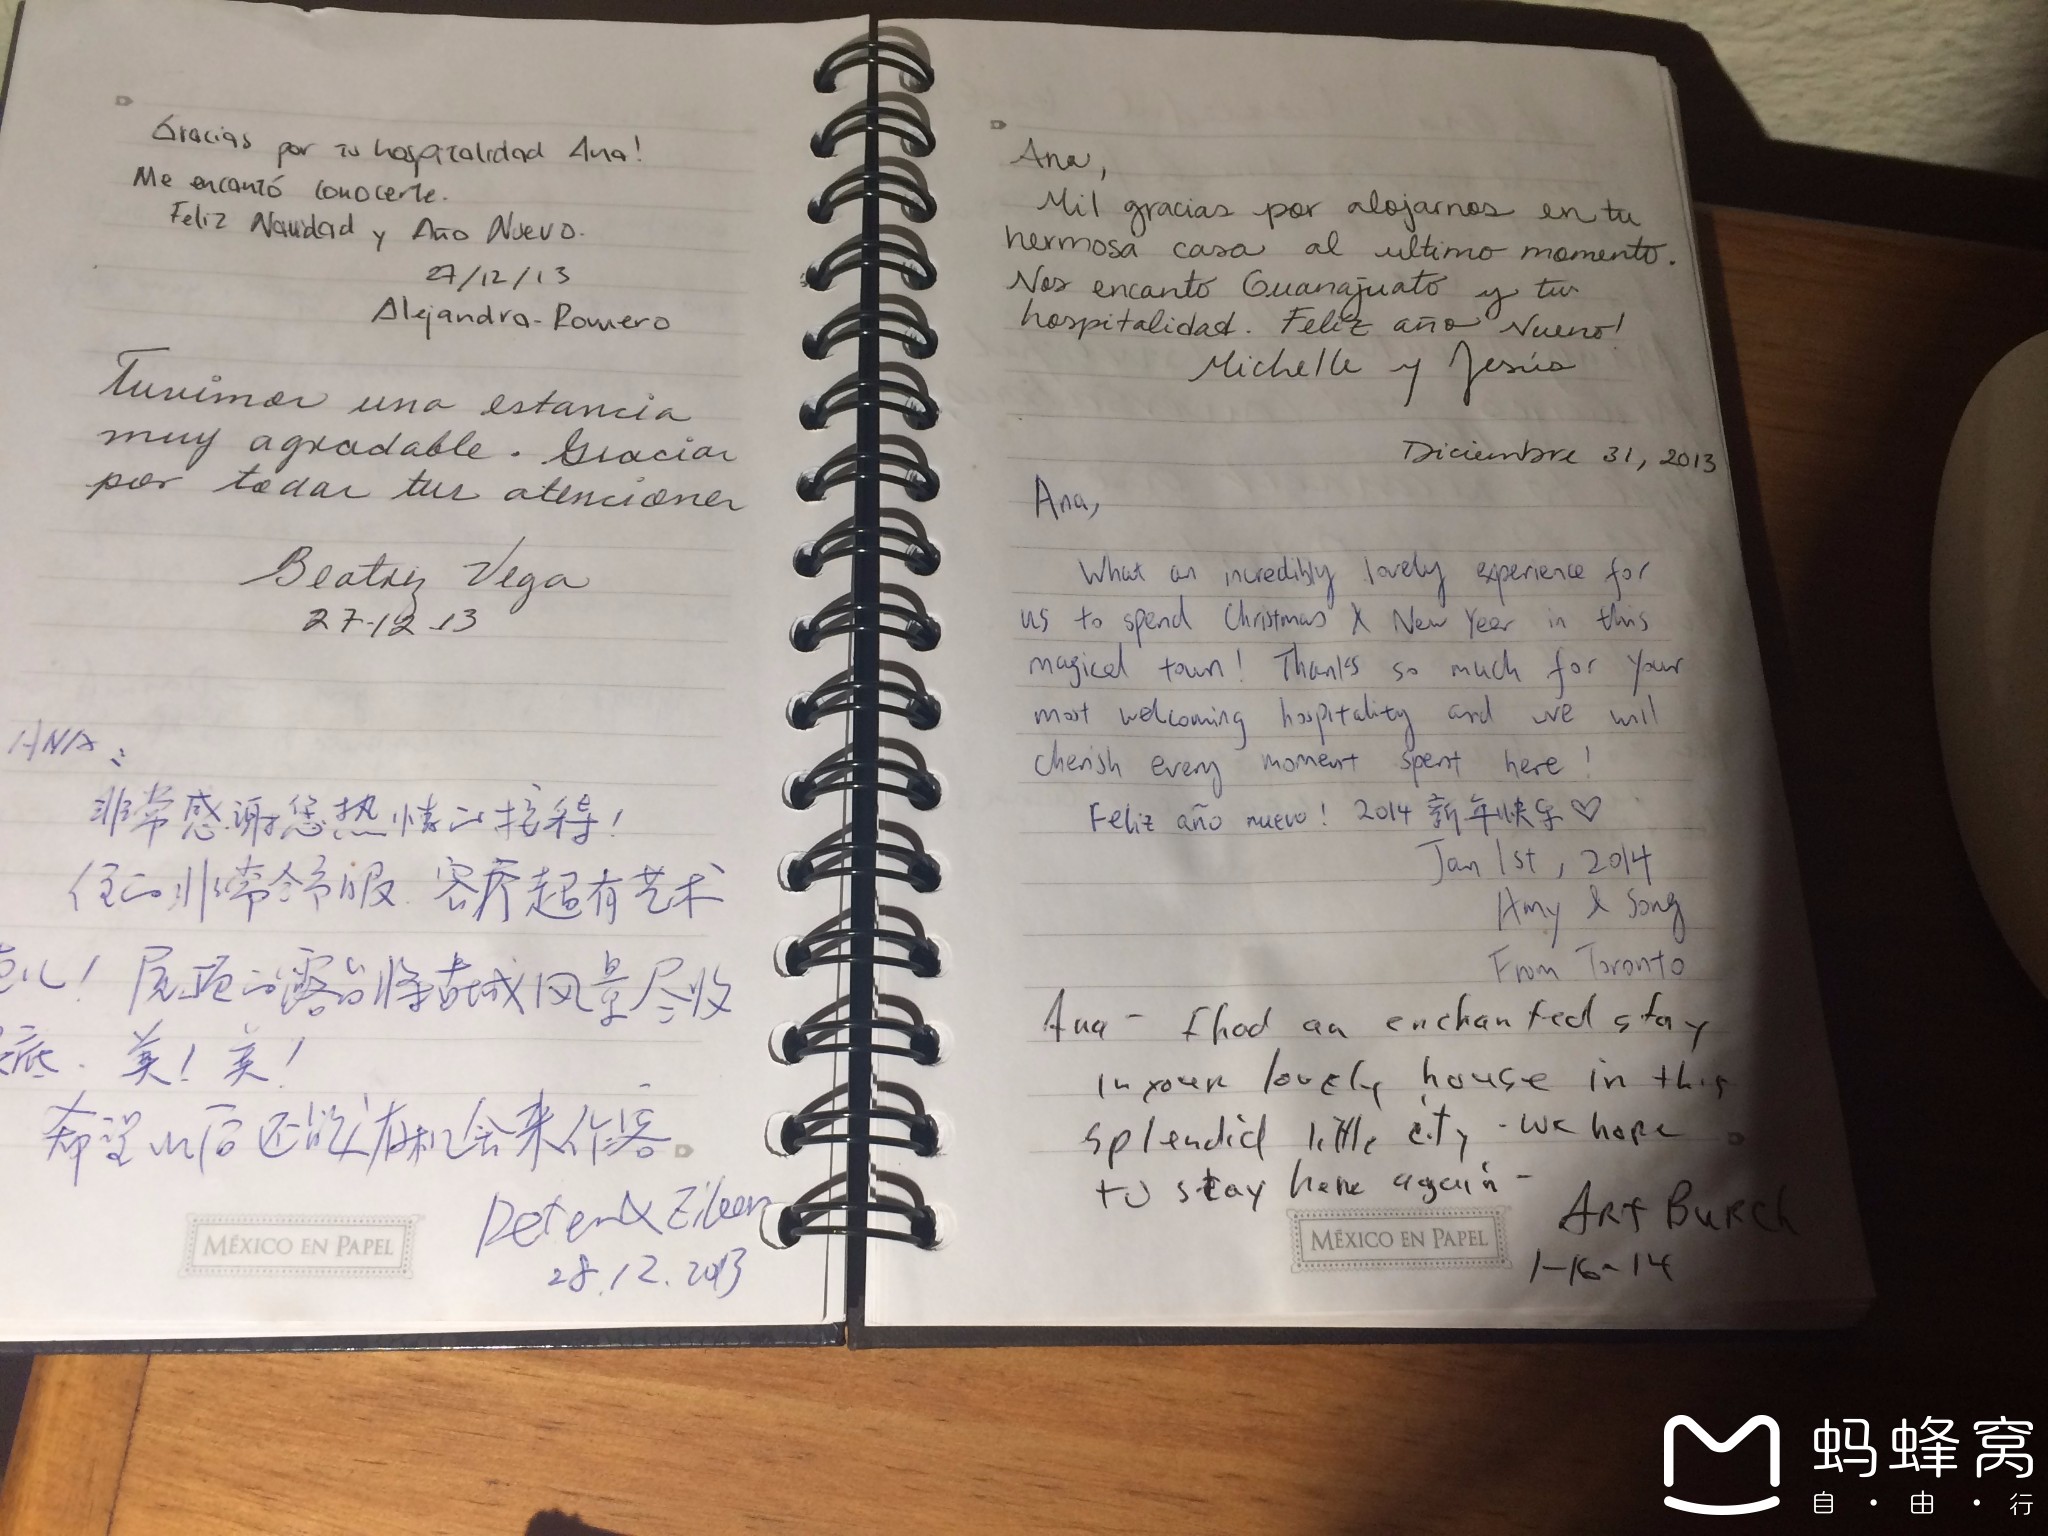 Gracias por tu hospitalidad Ana!
Me encantó conocerte.
Feliz Navidad y Año Nuevo.
27/12/13
Alejandra Romero
Tuvimos una estancia
muy agradable. Gracias
por todas tus atenciones
Beatriz Vega
27-12-13
ANA:
非常感谢您热情的接待!
住的非常舒服. 客厅超有艺术
范儿! 屋顶的露台将古城风景尽收
眼底. 美! 美!
希望以后还能有机会来作客
Peter & Eileen
28.12.2013
MÉXICO EN PAPEL
Ana,
Mil gracias por alojarnos en tu
hermosa casa al ultimo momento.
Nos encantó Guanajuato y tu
hospitalidad. Feliz año Nuevo!
Michelle y Jesús
Diciembre 31, 2013
Ana,
What an incredibly lovely experience for
us to spend Christmas & New Year in this
magical town! Thanks so much for your
most welcoming hospitality and we will
cherish every moment spent here!
Feliz año nuevo! 2014 新年快乐♡
Jan 1st, 2014
Amy & Song
From Toronto
Ana - I had an enchanted stay
in your lovely house in this
splendid little city - we hope
to stay here again -
ART BURCH
1-16-14
MÉXICO EN PAPEL
蚂蜂窝
自·由·行